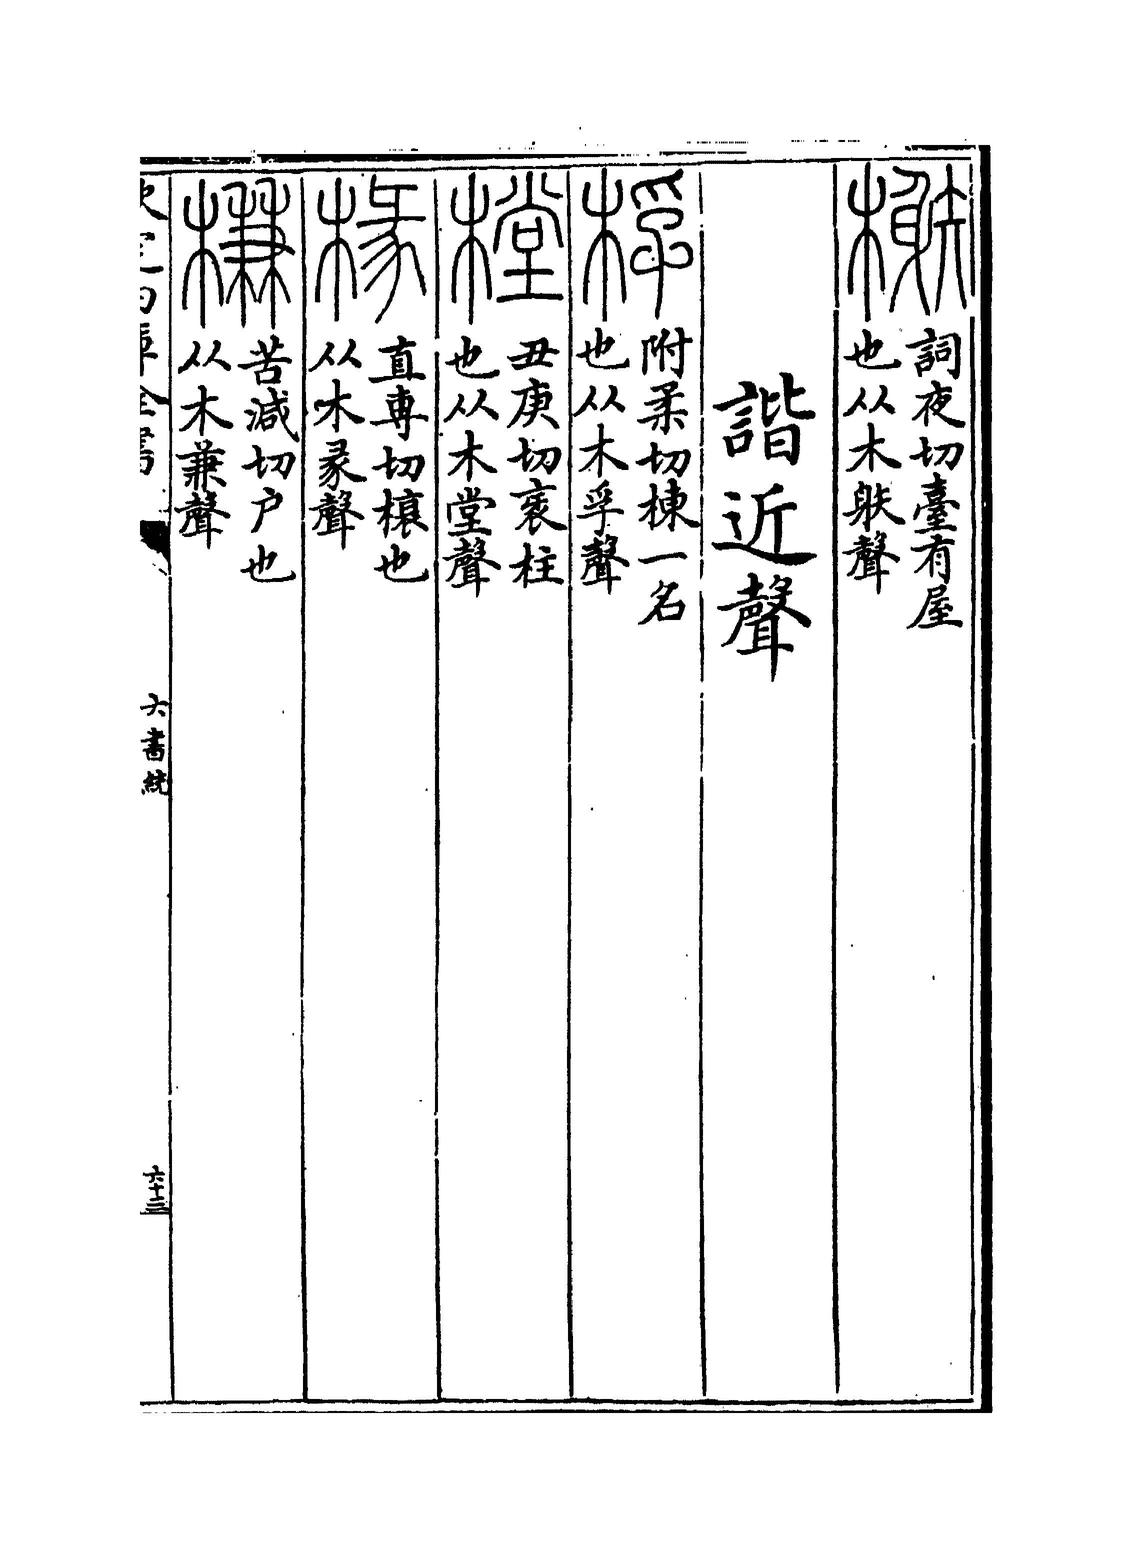 榭
詞夜切臺有屋
也从木躲聲
諧近聲
桴
附柔切棟一名
也从木孚聲
樘
丑庚切衺柱
也从木堂聲
椽
直專切榱也
从木彖聲
槏
苦減切户也
从木兼聲
六書統
六十三